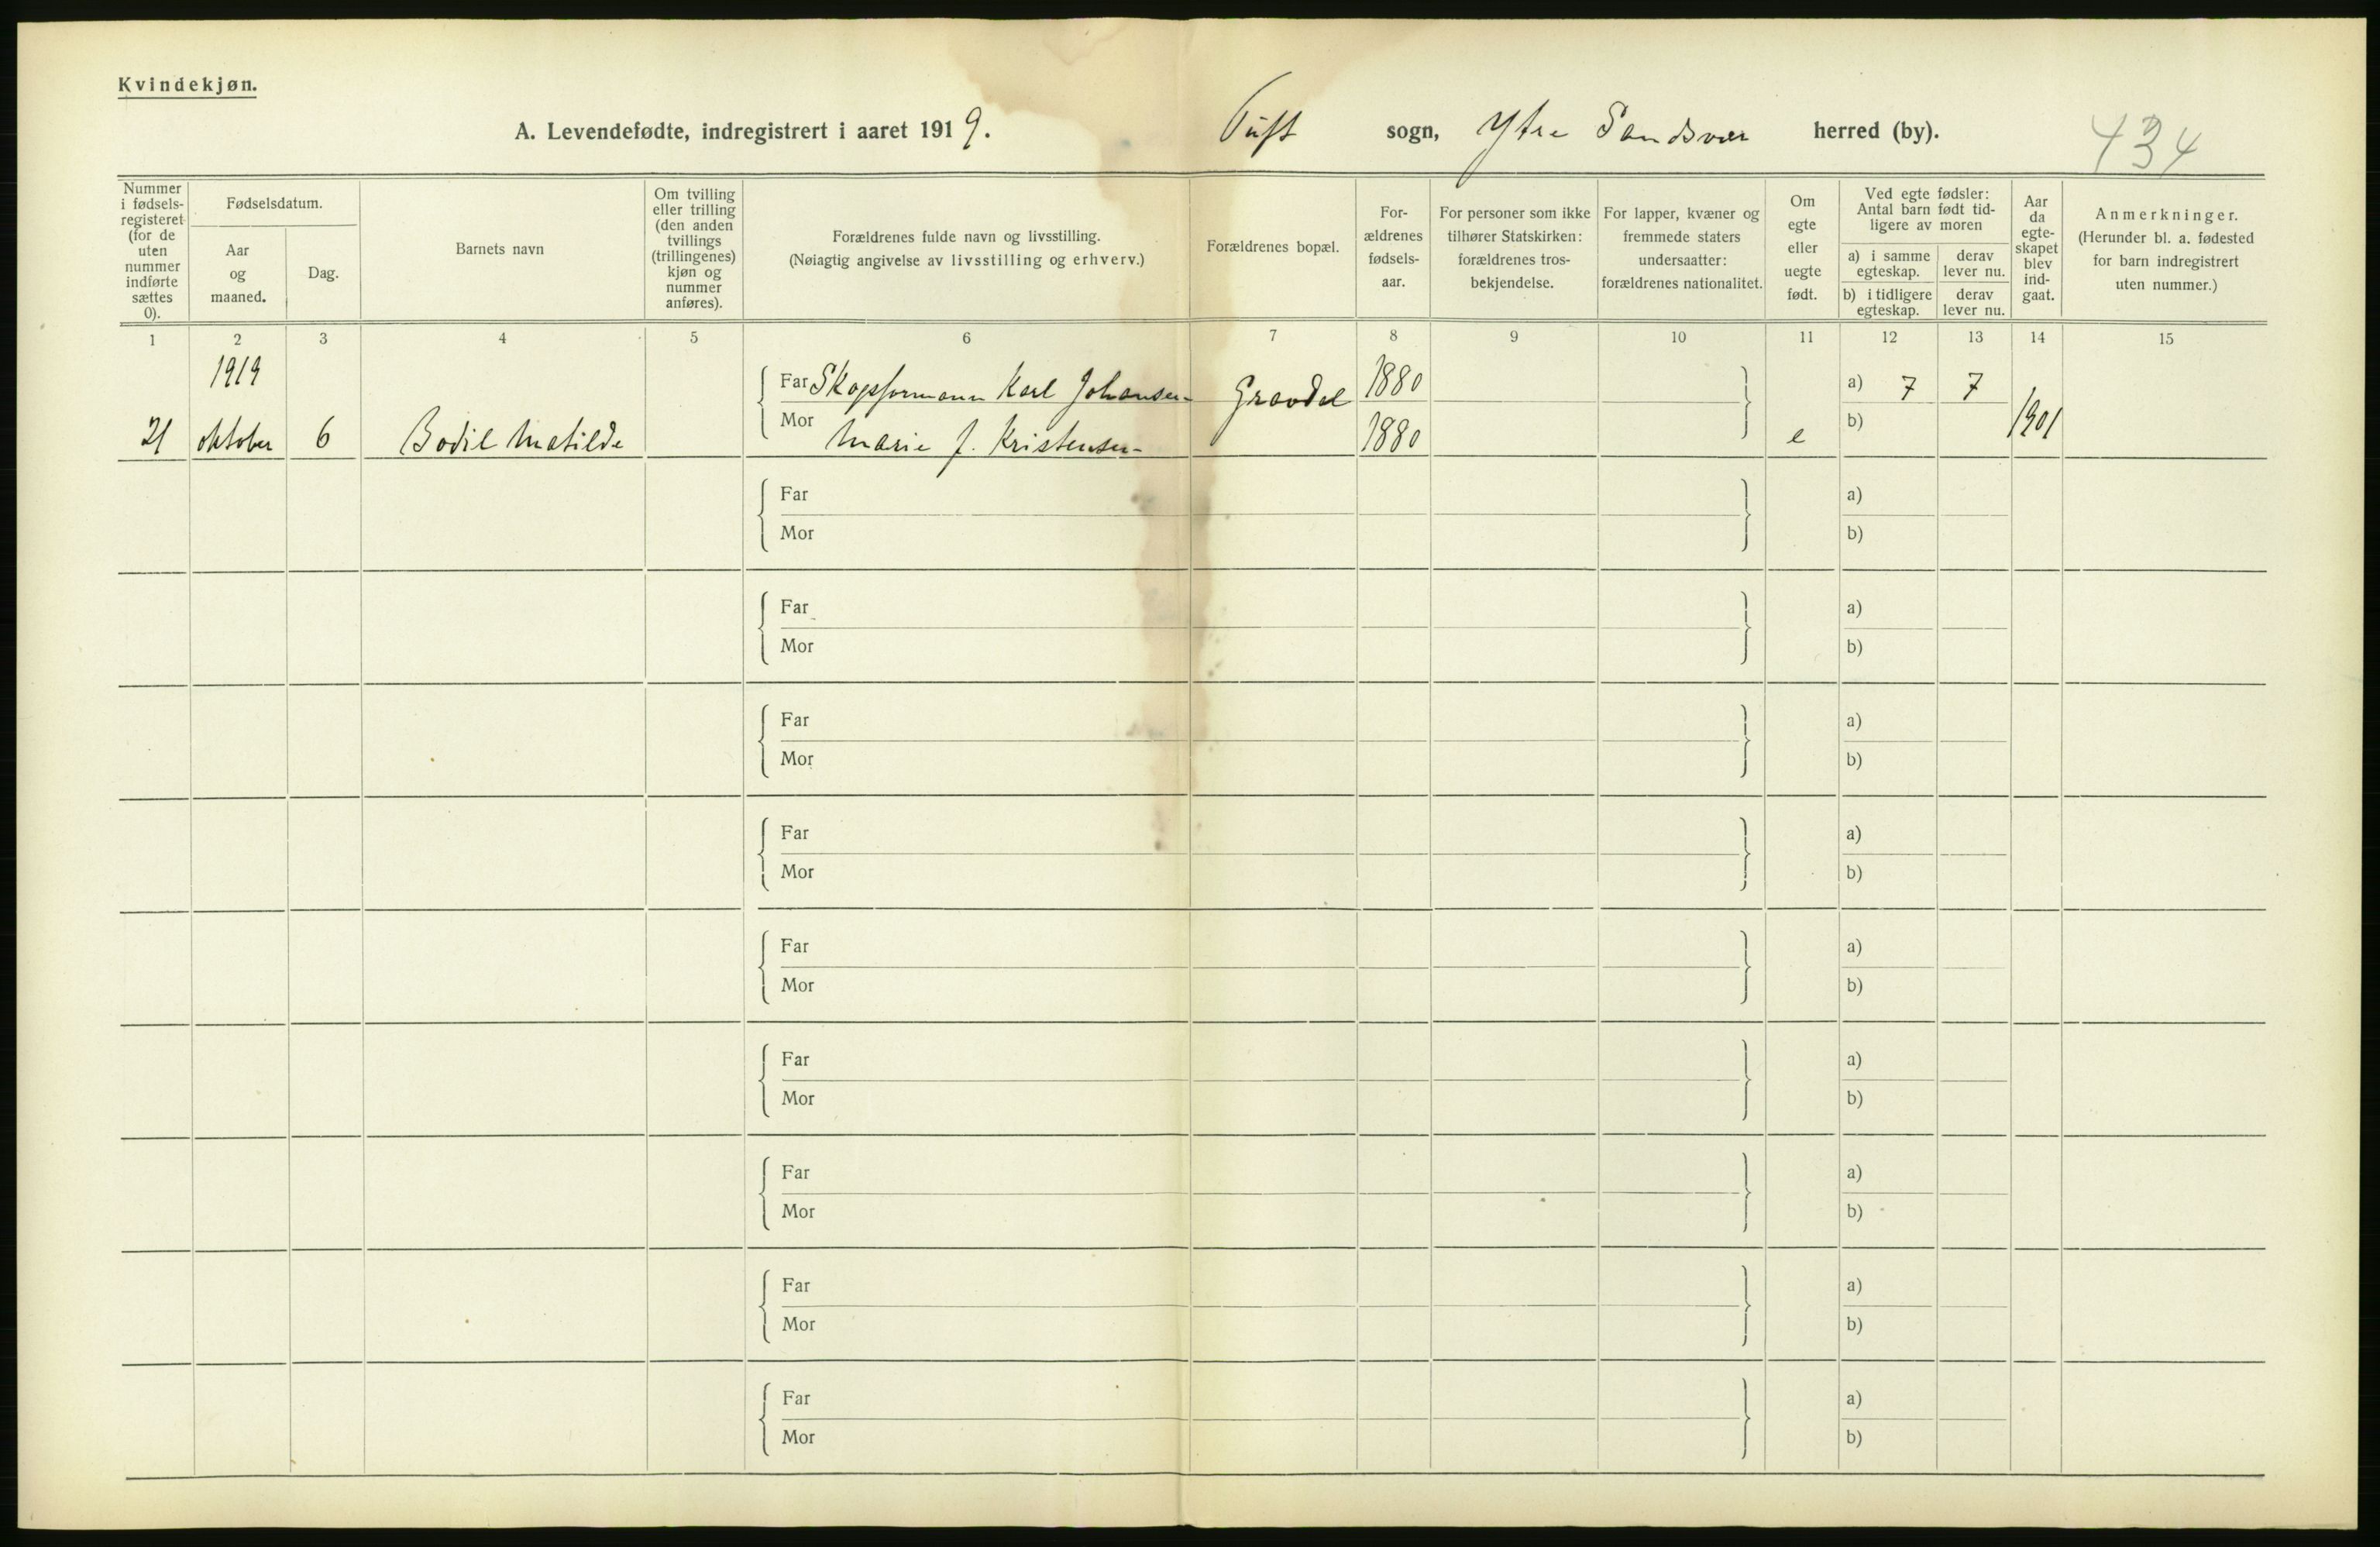 Kvindekjøn.
A. Levendefødte, indregistrert i aaret 1919. Tuft sogn, Ytre Sandsvær herred (by). 434
Nummer i fødsels-registeret (for de uten nummer indførte sættes 0).
Fødselsdatum.
Aar og maaned.
Dag.
Barnets navn
Om tvilling eller trilling (den anden tvillings (trillingenes) kjøn og nummer anføres).
Forældrenes fulde navn og livsstilling.
(Nøiagtig angivelse av livsstilling og erhverv.)
Forældrenes bopæl.
For-ældrenes fødsels-aar.
For personer som ikke tilhører Statskirken: forældrenes tros-bekjendelse.
For lapper, kvæner og fremmede staters undersaatter: forældrenes nationalitet.
Om egte eller uegte født.
Ved egte fødsler: Antal barn født tid-ligere av moren
a) i samme egteskap.
derav lever nu.
b) i tidligere egteskap.
derav lever nu.
Aar da egte-skapet blev ind-gaat.
Anmerkninger.
(Herunder bl. a. fødested for barn indregistrert uten nummer.)
1 2 3 4 5 6 7 8 9 10 11 12 13 14 15
1919 Far Skogsformann Karl Johansen Gravdal 1880 a) 7 7
21 oktober 6 Bodil Matilde Mor Marie f. Kristensen 1880 e b) 1901
Far a)
Mor b)
Far a)
Mor b)
Far a)
Mor b)
Far a)
Mor b)
Far a)
Mor b)
Far a)
Mor b)
Far a)
Mor b)
Far a)
Mor b)
Far a)
Mor b)